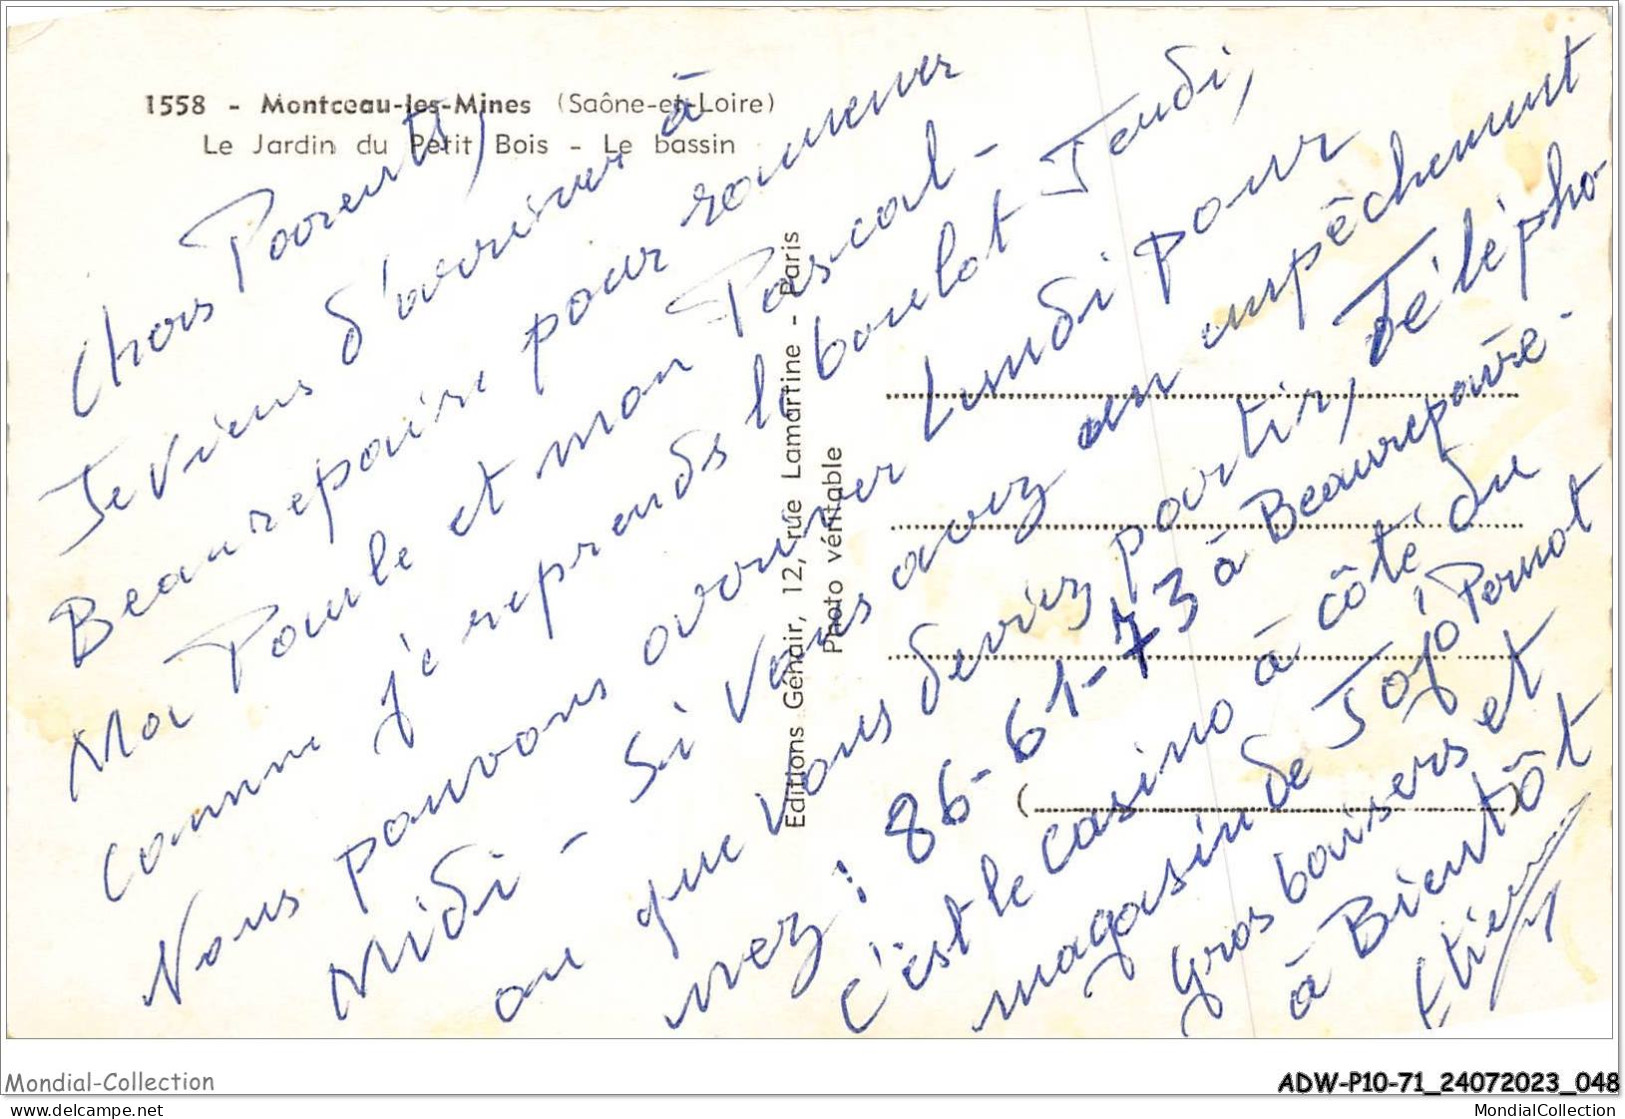 1558 - Montceau-les-Mines (Saône-et-Loire)
Le Jardin du Petit Bois - Le bassin
Chers Parents,
Je viens d'arriver à
Beaurepaire pour ramener
Moi Poule et mon Pascal -
comme j'e reprends le boulot Jeudi,
Nous pouvons arriver Lundi pour
Midi - Si vous avez un empêchement
ou que vous deviez partir, Télépho-
nez : 86-61-73 à Beaurepaire -
c'est le casino à côté du
magasin de Jojo Pernot
Gros baisers et
à Bientôt
Editions Génair, 12, rue Lamartine - Paris
Photo véritable
( )
Mondial-Collection
ADW-P10-71_24072023_048
www.delcampe.net
MondialCollection